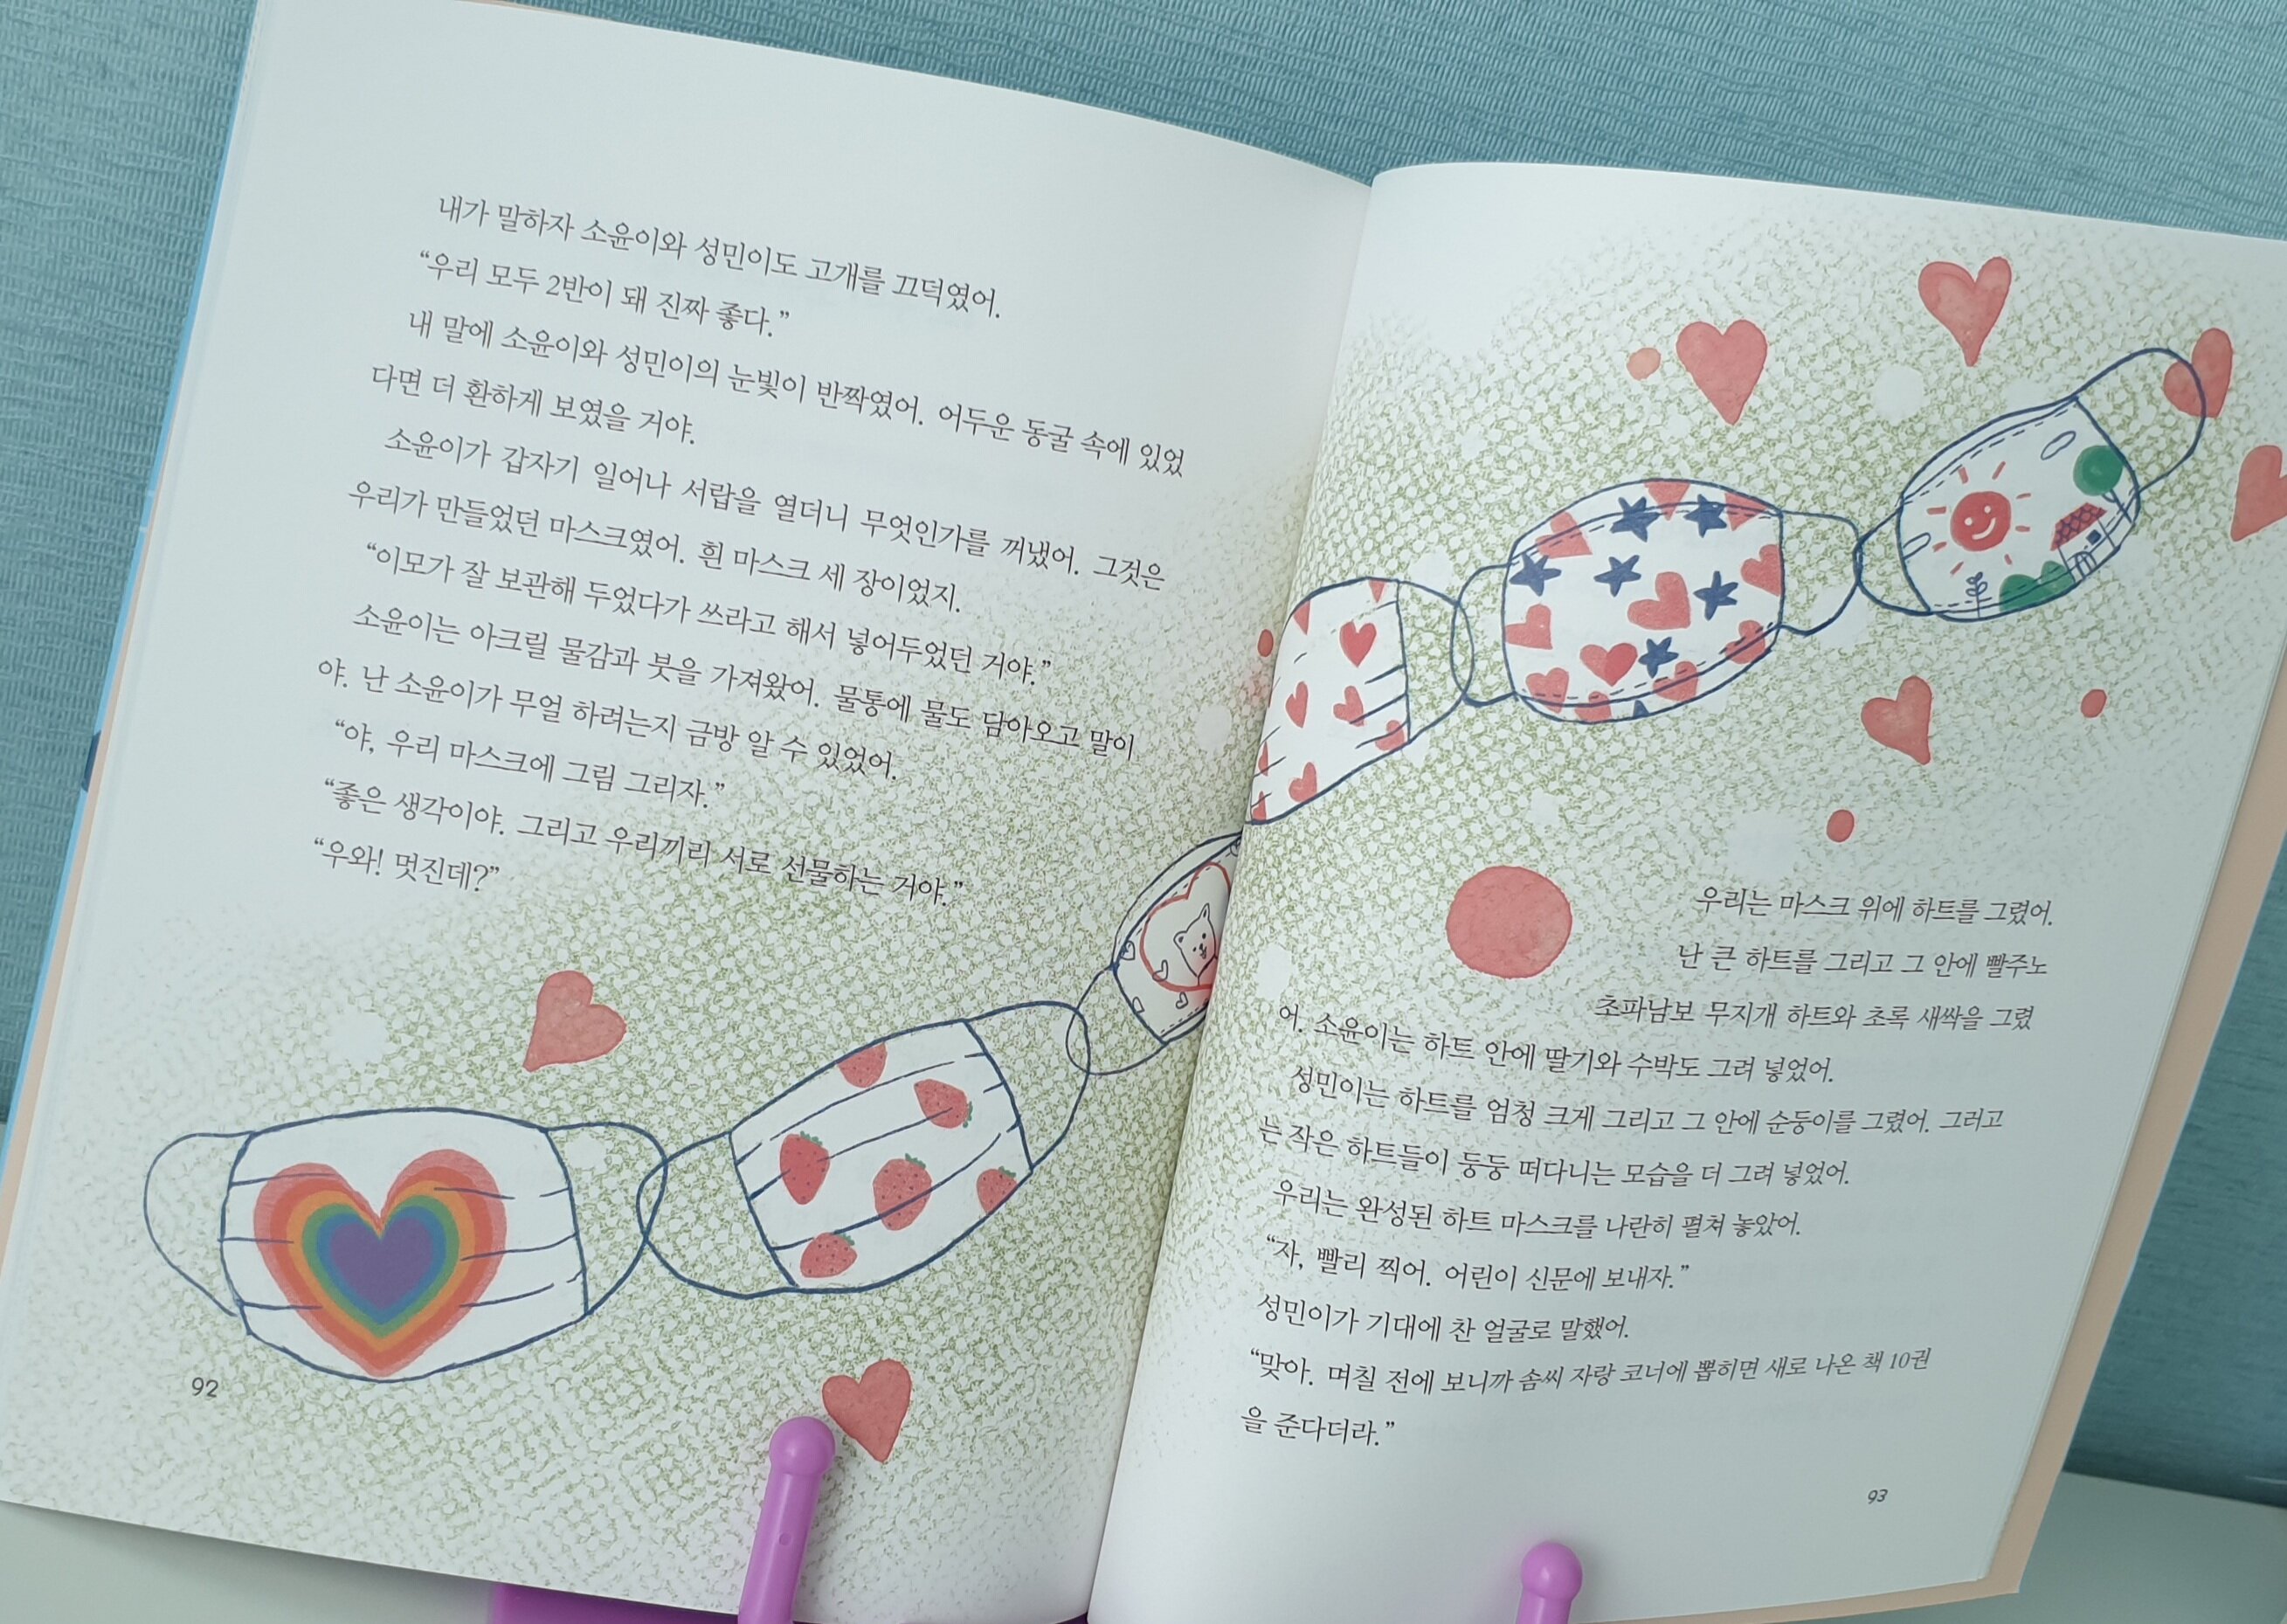 내가 말하자 소윤이와 성민이도 고개를 끄덕였어.
“우리 모두 2반이 돼 진짜 좋다.”
내 말에 소윤이와 성민이의 눈빛이 반짝였어. 어두운 동굴 속에 있었
다면 더 환하게 보였을 거야.
소윤이가 갑자기 일어나 서랍을 열더니 무엇인가를 꺼냈어. 그것은
우리가 만들었던 마스크였어. 흰 마스크 세 장이었지.
“이모가 잘 보관해 두었다가 쓰라고 해서 넣어두었던 거야.”
소윤이는 아크릴 물감과 붓을 가져왔어. 물통에 물도 담아오고 말이
야. 난 소윤이가 무얼 하려는지 금방 알 수 있었어.
“야, 우리 마스크에 그림 그리자.”
“좋은 생각이야. 그리고 우리끼리 서로 선물하는 거야.”
“우와! 멋진데?”
92
우리는 마스크 위에 하트를 그렸어.
난 큰 하트를 그리고 그 안에 빨주노
초파남보 무지개 하트와 초록 새싹을 그렸
어. 소윤이는 하트 안에 딸기와 수박도 그려 넣었어.
성민이는 하트를 엄청 크게 그리고 그 안에 순둥이를 그렸어. 그러고
는 작은 하트들이 둥둥 떠다니는 모습을 더 그려 넣었어.
우리는 완성된 하트 마스크를 나란히 펼쳐 놓았어.
“자, 빨리 찍어. 어린이 신문에 보내자.”
성민이가 기대에 찬 얼굴로 말했어.
“맞아. 며칠 전에 보니까 솜씨 자랑 코너에 뽑히면 새로 나온 책 10권
을 준다더라.”
93